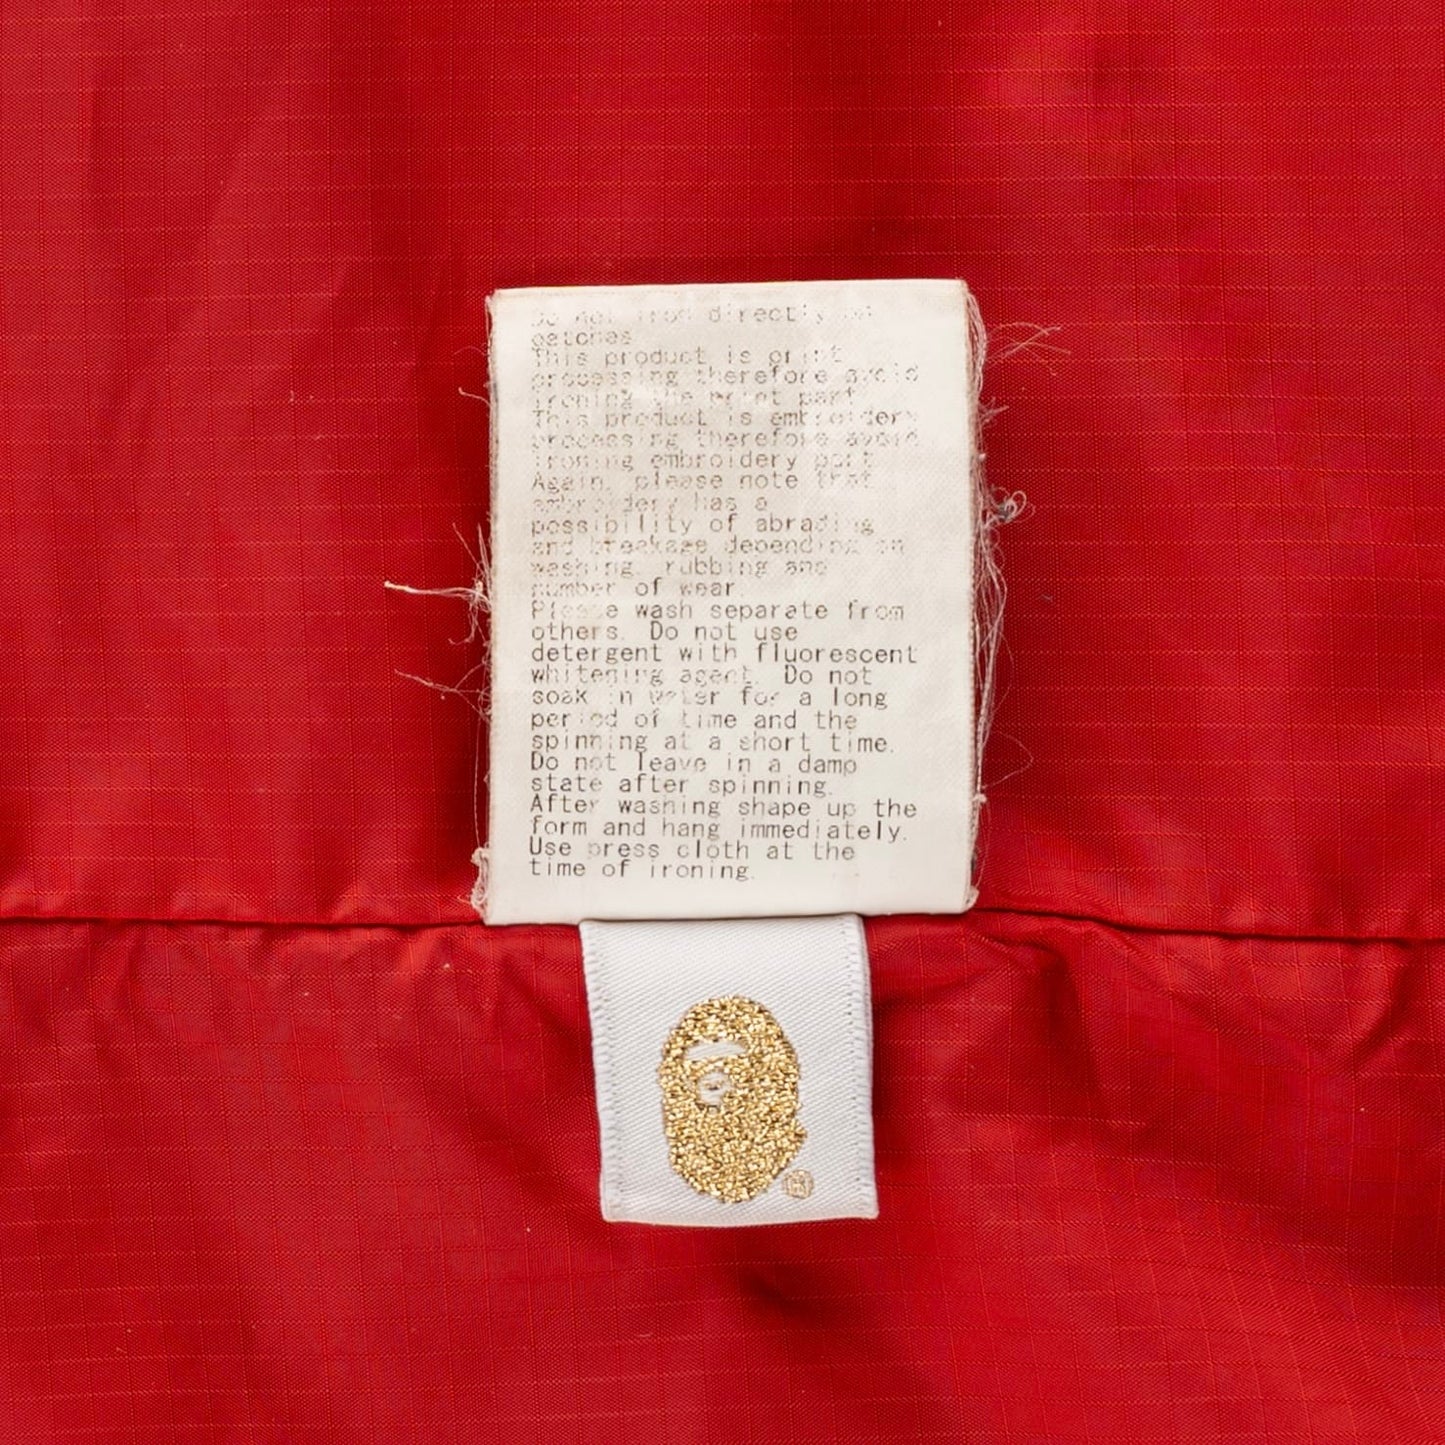 Do not iron directly on
patches
This product is print
processing therefore avoid
ironing the print part
This product is embroidery
processing therefore avoid
ironing embroidery part
Again, please note that
embroidery has a
possibility of abrading
and breakage depending on
washing, rubbing and
number of wear.
Please wash separate from
others. Do not use
detergent with fluorescent
whitening agent. Do not
soak in water for a long
period of time and the
spinning at a short time.
Do not leave in a damp
state after spinning.
After washing shape up the
form and hang immediately.
Use press cloth at the
time of ironing.